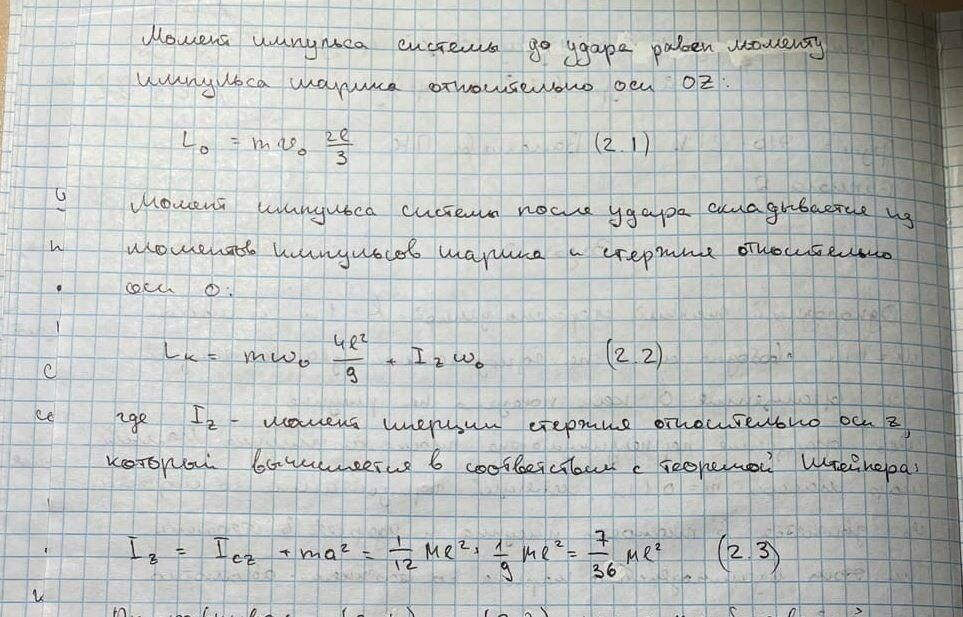 Момент импульса системы до удара равен моменту
импульса шарика относительно оси OZ:
L₀ = mv₀ 2l/3 (2.1)
Момент импульса системы после удара складывается из
моментов импульсов шарика и стержня относительно
оси O:
Lк = mω₀ 4l²/9 + I_z ω₀ (2.2)
где I_z - момент инерции стержня относительно оси z,
который вычисляется в соответствии с теоремой Штейнера:
I_z = I_cz + ma² = 1/12 Ml² + 1/9 Ml² = 7/36 Ml² (2.3)